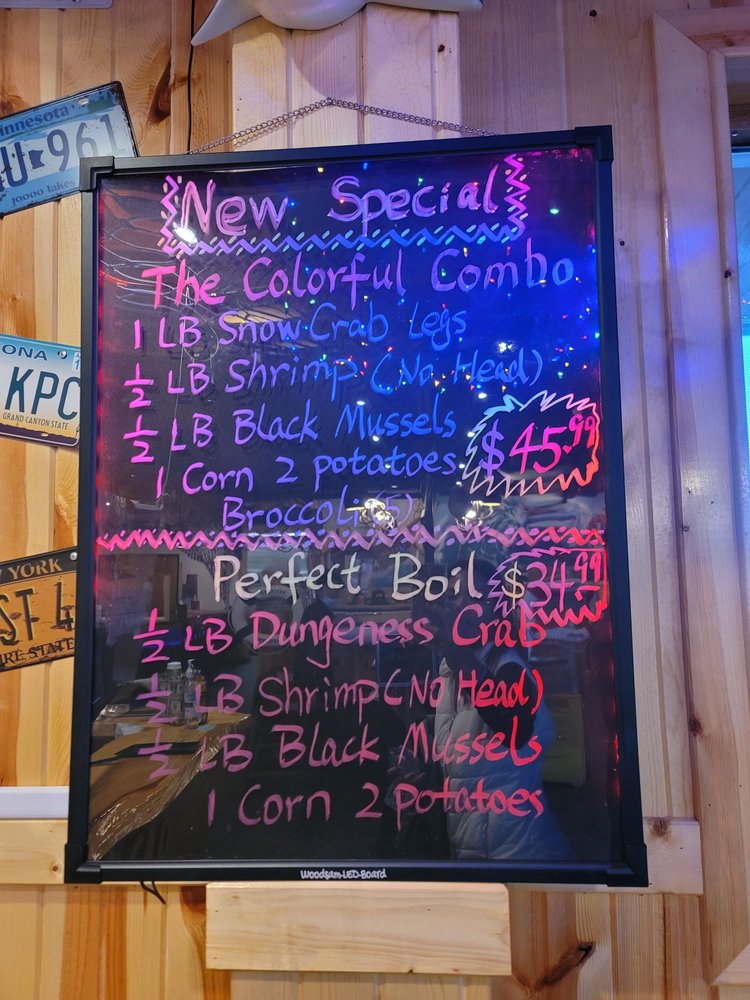 innesota
U 961
10000 lakes
New Special
The Colorful Combo
1 LB Snow Crab Legs
½ LB Shrimp (No Head)
½ LB Black Mussels
$45.99
1 Corn 2 potatoes
Broccoli (5)
ONA
KPC
GRAND CANYON STATE
Perfect Boil $34.99
½ LB Dungeness Crab
½ LB Shrimp (No Head)
½ LB Black Mussels
1 Corn 2 potatoes
W YORK
ST 4
IRE STATE
Woodsam-LED-Board